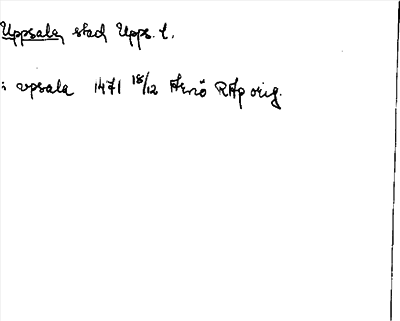 Uppsala, stad Upps. l.
: vpsala 1471 18/12 Arnö RAp orig.